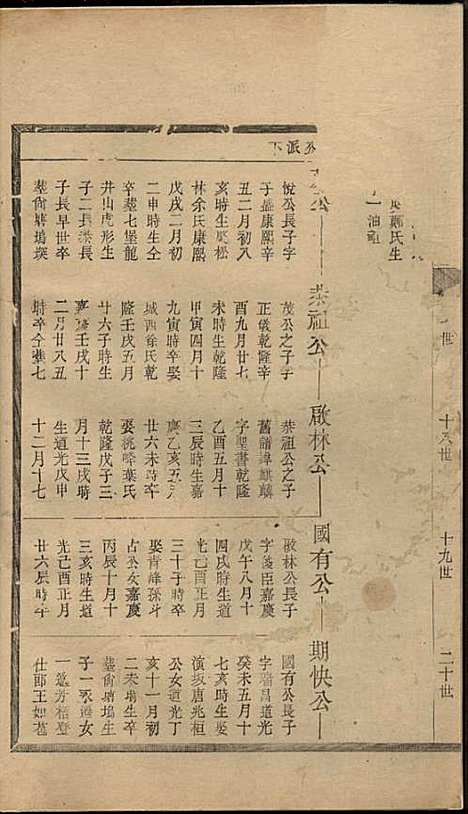 鄭氏生
油祖
世
十八世
十九世
二十世
派下
公
恭祖公
啟林公
國有公
期快公
悅公長子字
于盛康熙辛
丑二月初八
亥時生娶松
林余氏康熙
戊戌二月初
二申時生仝
卒墓七堡龍
井山虎形生
子二長恭長
子長早世卒
墓尚塘塢墺
茂公之子字
正儀乾隆辛
酉九月廿七
未時生乾隆
甲寅四月十
九寅時卒娶
城西徐氏乾
隆壬戌五月
廿六子時生
嘉慶壬戌十
二月廿八丑
時卒仝墓七
恭祖公之子
舊譜諱麒麟
字聖書乾隆
乙酉五月十
三辰時生嘉
慶乙亥五月
廿六未時卒
娶洮嶂葉氏
乾隆戊子三
月十三戌時
生道光戊申
十二月十七
啟林公長子
字臣嘉慶
戊午八月十
四戌時生道
光己酉正月
三十子時卒
娶青峰孫斗
占公女嘉慶
丙辰十月十
三亥時生道
光己酉正月
廿六辰時卒
國有公長子
字瑞昌道光
癸未五月十
七亥時生娶
演坂唐兆桓
公女道光丁
亥十一月初
二未時生卒
墓尚塘塢生
子一承女
一適芳梧登
仕郎王如